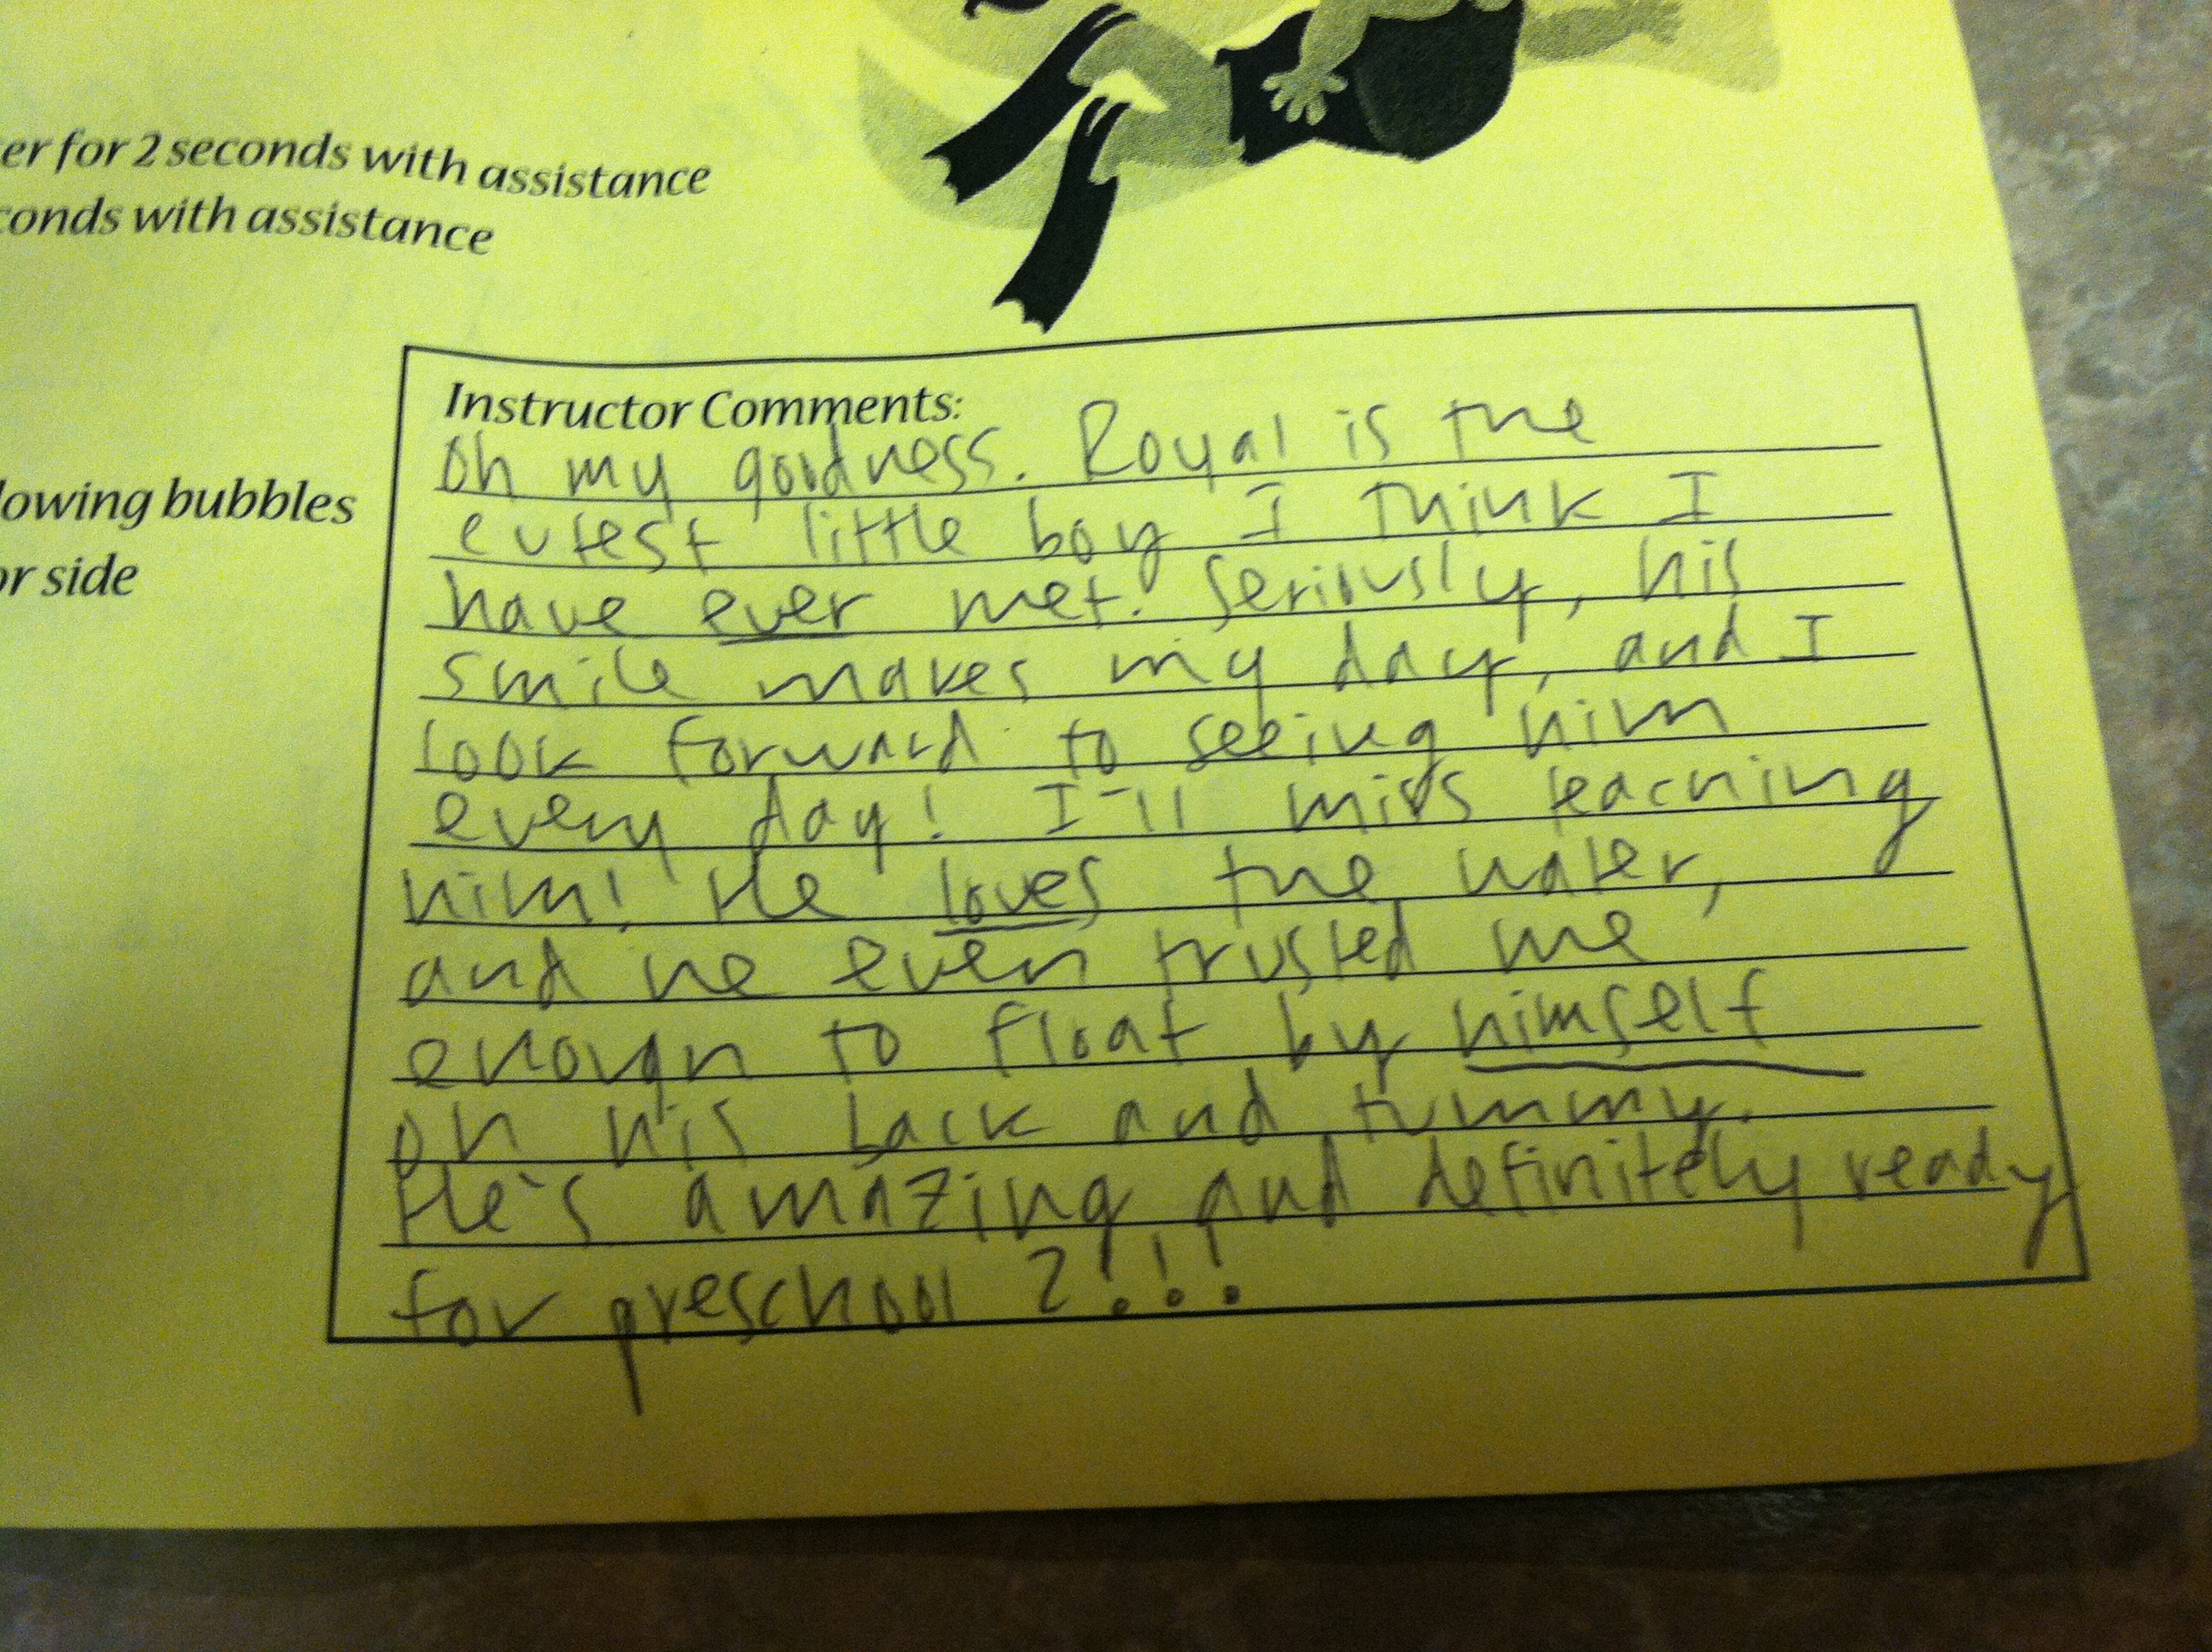 er for 2 seconds with assistance
conds with assistance
lowing bubbles
or side
Instructor Comments:
Oh my goodness. Royal is the
cutest little boy I think I
have ever met. Seriously, his
smile makes my day, and I
look forward to seeing him
every day! I'll miss teaching
him! He loves the water,
and he even trusted me
enough to float by himself
on his back and tummy.
He's amazing and definitely ready
for preschool 2!!!